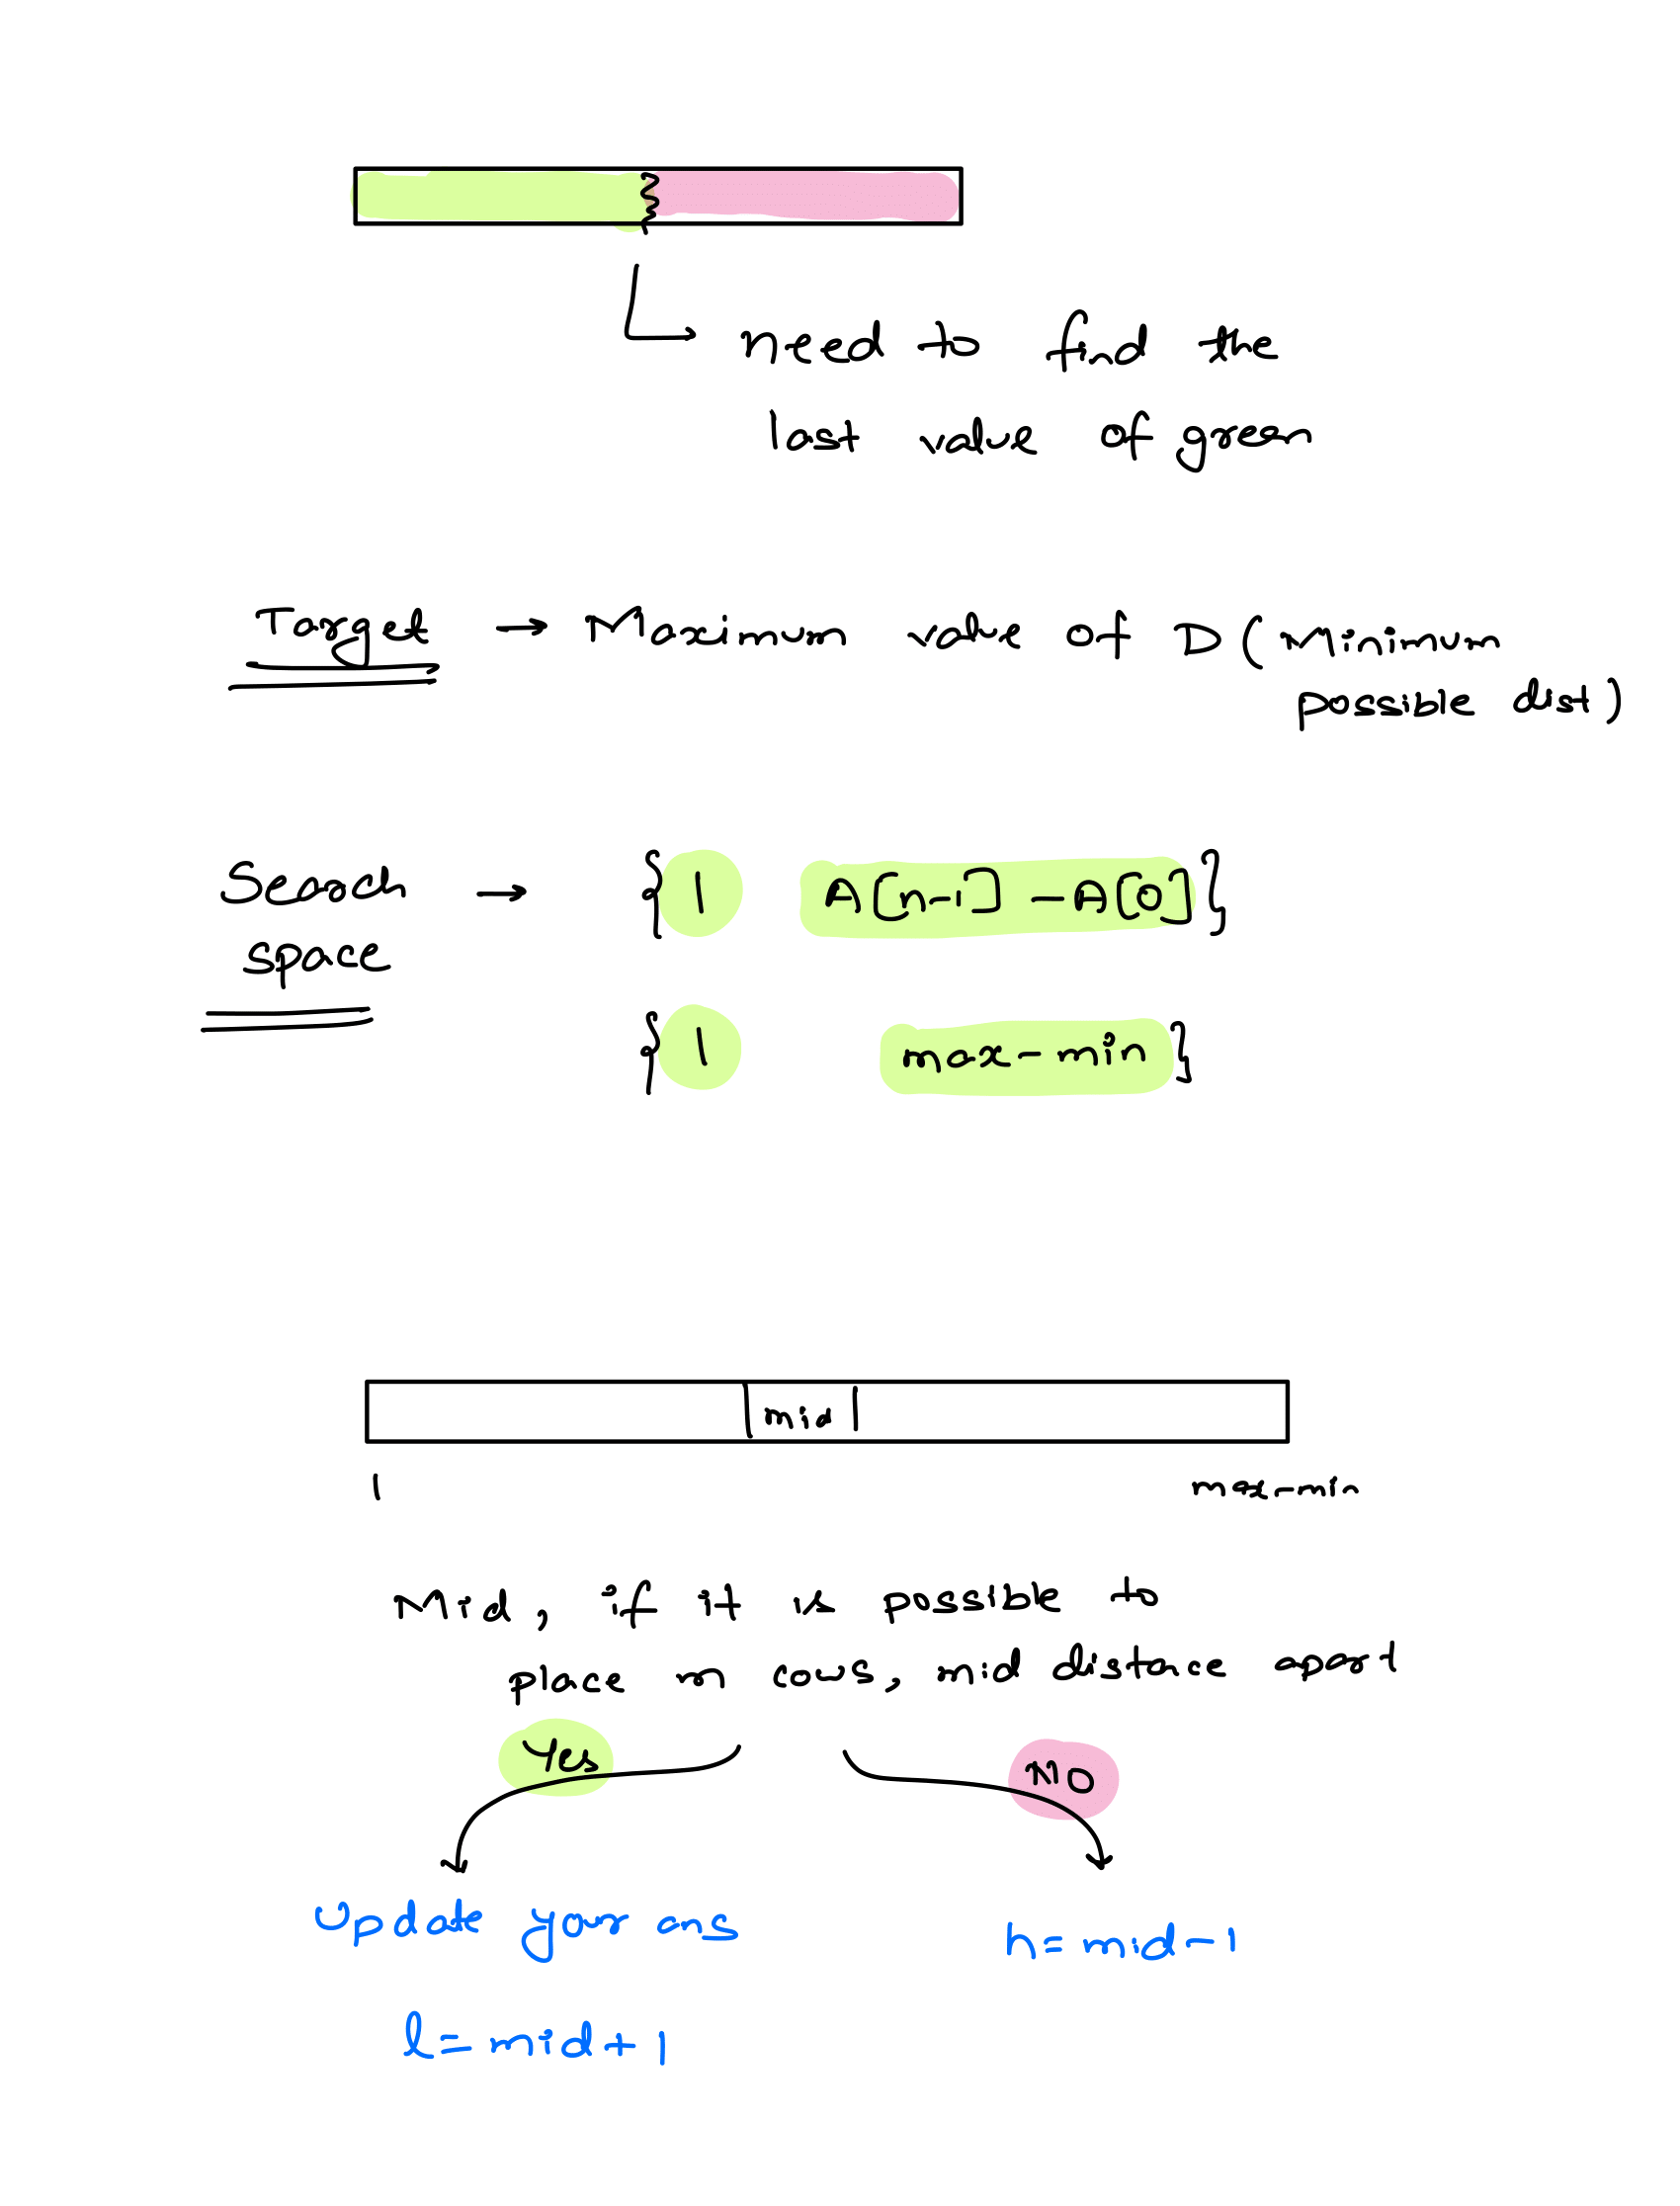 need to find the
last value of green
Target → Maximum value of D (Minimum
possible dist)
Search → { 1 A[n-1] - A[0] }
space
{ 1 max-min }
mid
1 max-min
Mid, if it is possible to
place m cows, mid distance apart
Yes NO
Update your ans h=mid-1
l=mid+1